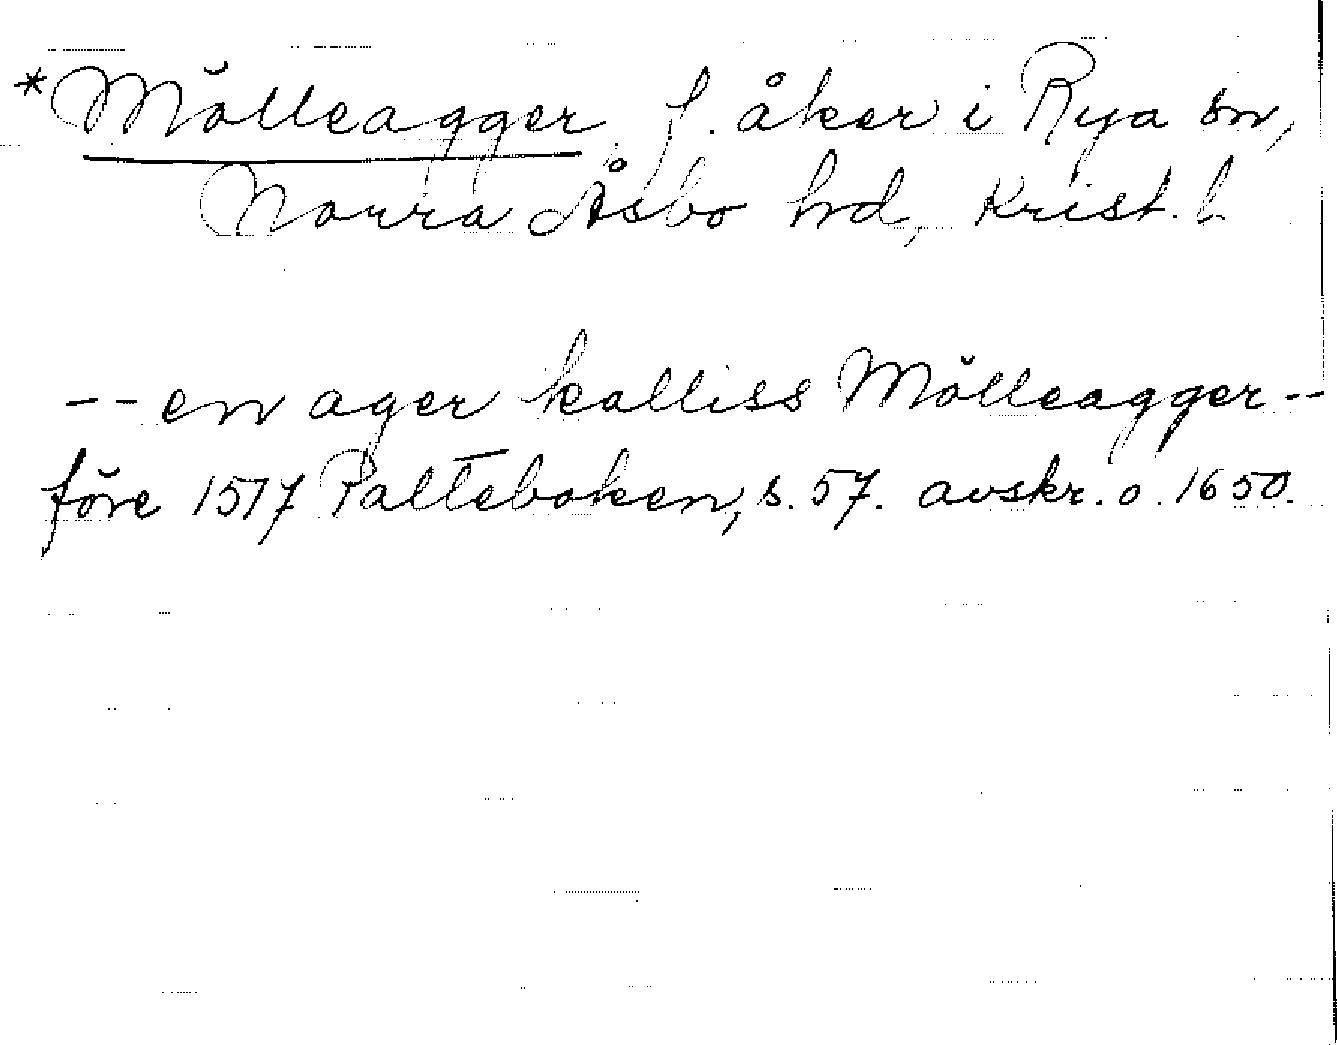 *Mölleagger f. åker i Rya sn,
Norra Åsbo hd, Krist. l
-- en ager kalliss Mölleagger --
före 1517 Palteboken, s. 57. avskr. o. 1650.